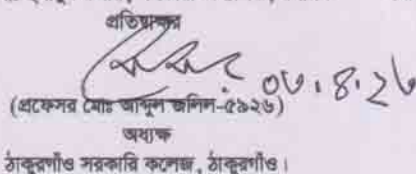 প্রতিস্বাক্ষর
০৬.৪.২৬
(প্রফেসর মোঃ আব্দুল জলিল-৫৯২৬)
অধ্যক্ষ
ঠাকুরগাঁও সরকারি কলেজ, ঠাকুরগাঁও।